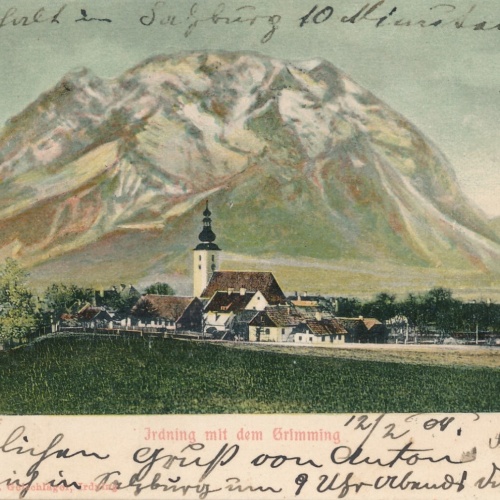 halt in Salzburg 10 Minuten
Irdning mit dem Grimming
12/2 04.
lichen Gruß von Anton
in Salzburg um 9 Uhr Abends
Irdning